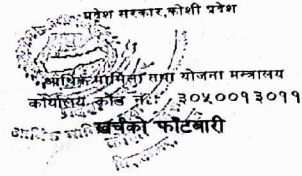 प्रदेश सरकार,कोशी प्रदेश
आर्थिक मामिला तथा योजना मन्त्रालय
कार्यालय कोड नं.: ३०५००१३०११
खर्चको फाँटवारी